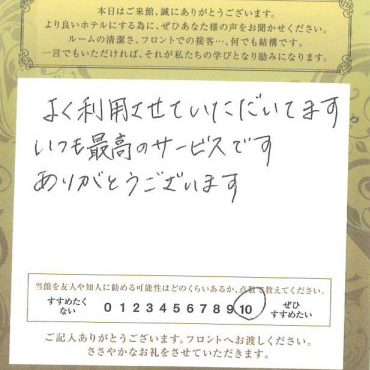 本日はご来館、誠にありがとうございます。
より良いホテルにする為に、ぜひあなた様の声をお聞かせください。
ルームの清潔さ、フロントでの接客…、何でも結構です。
一言でもいただければ、それが私たちの学びとなり励みになります。
よく利用させていただいてます。
いつも最高のサービスです
ありがとうございます
当館を友人や知人に勧める可能性はどのくらいあるか、点数で教えてください。
すすめたく
ない
0 1 2 3 4 5 6 7 8 9 10
ぜひ
すすめたい
ご記入ありがとうございます。フロントへお渡しください。
ささやかなお礼をさせていただきます。